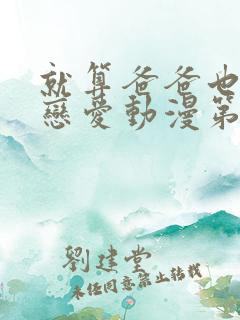 就算爸爸也
戀愛動漫第
劉建堂
未任同意禁止转载